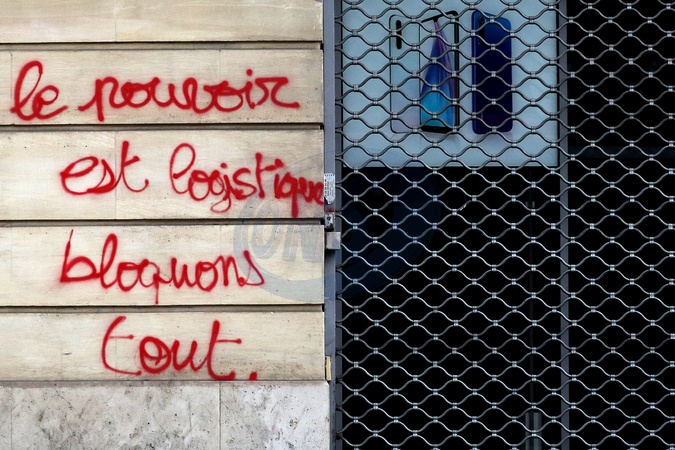 le pouvoir
est logistique
bloquons
tout.